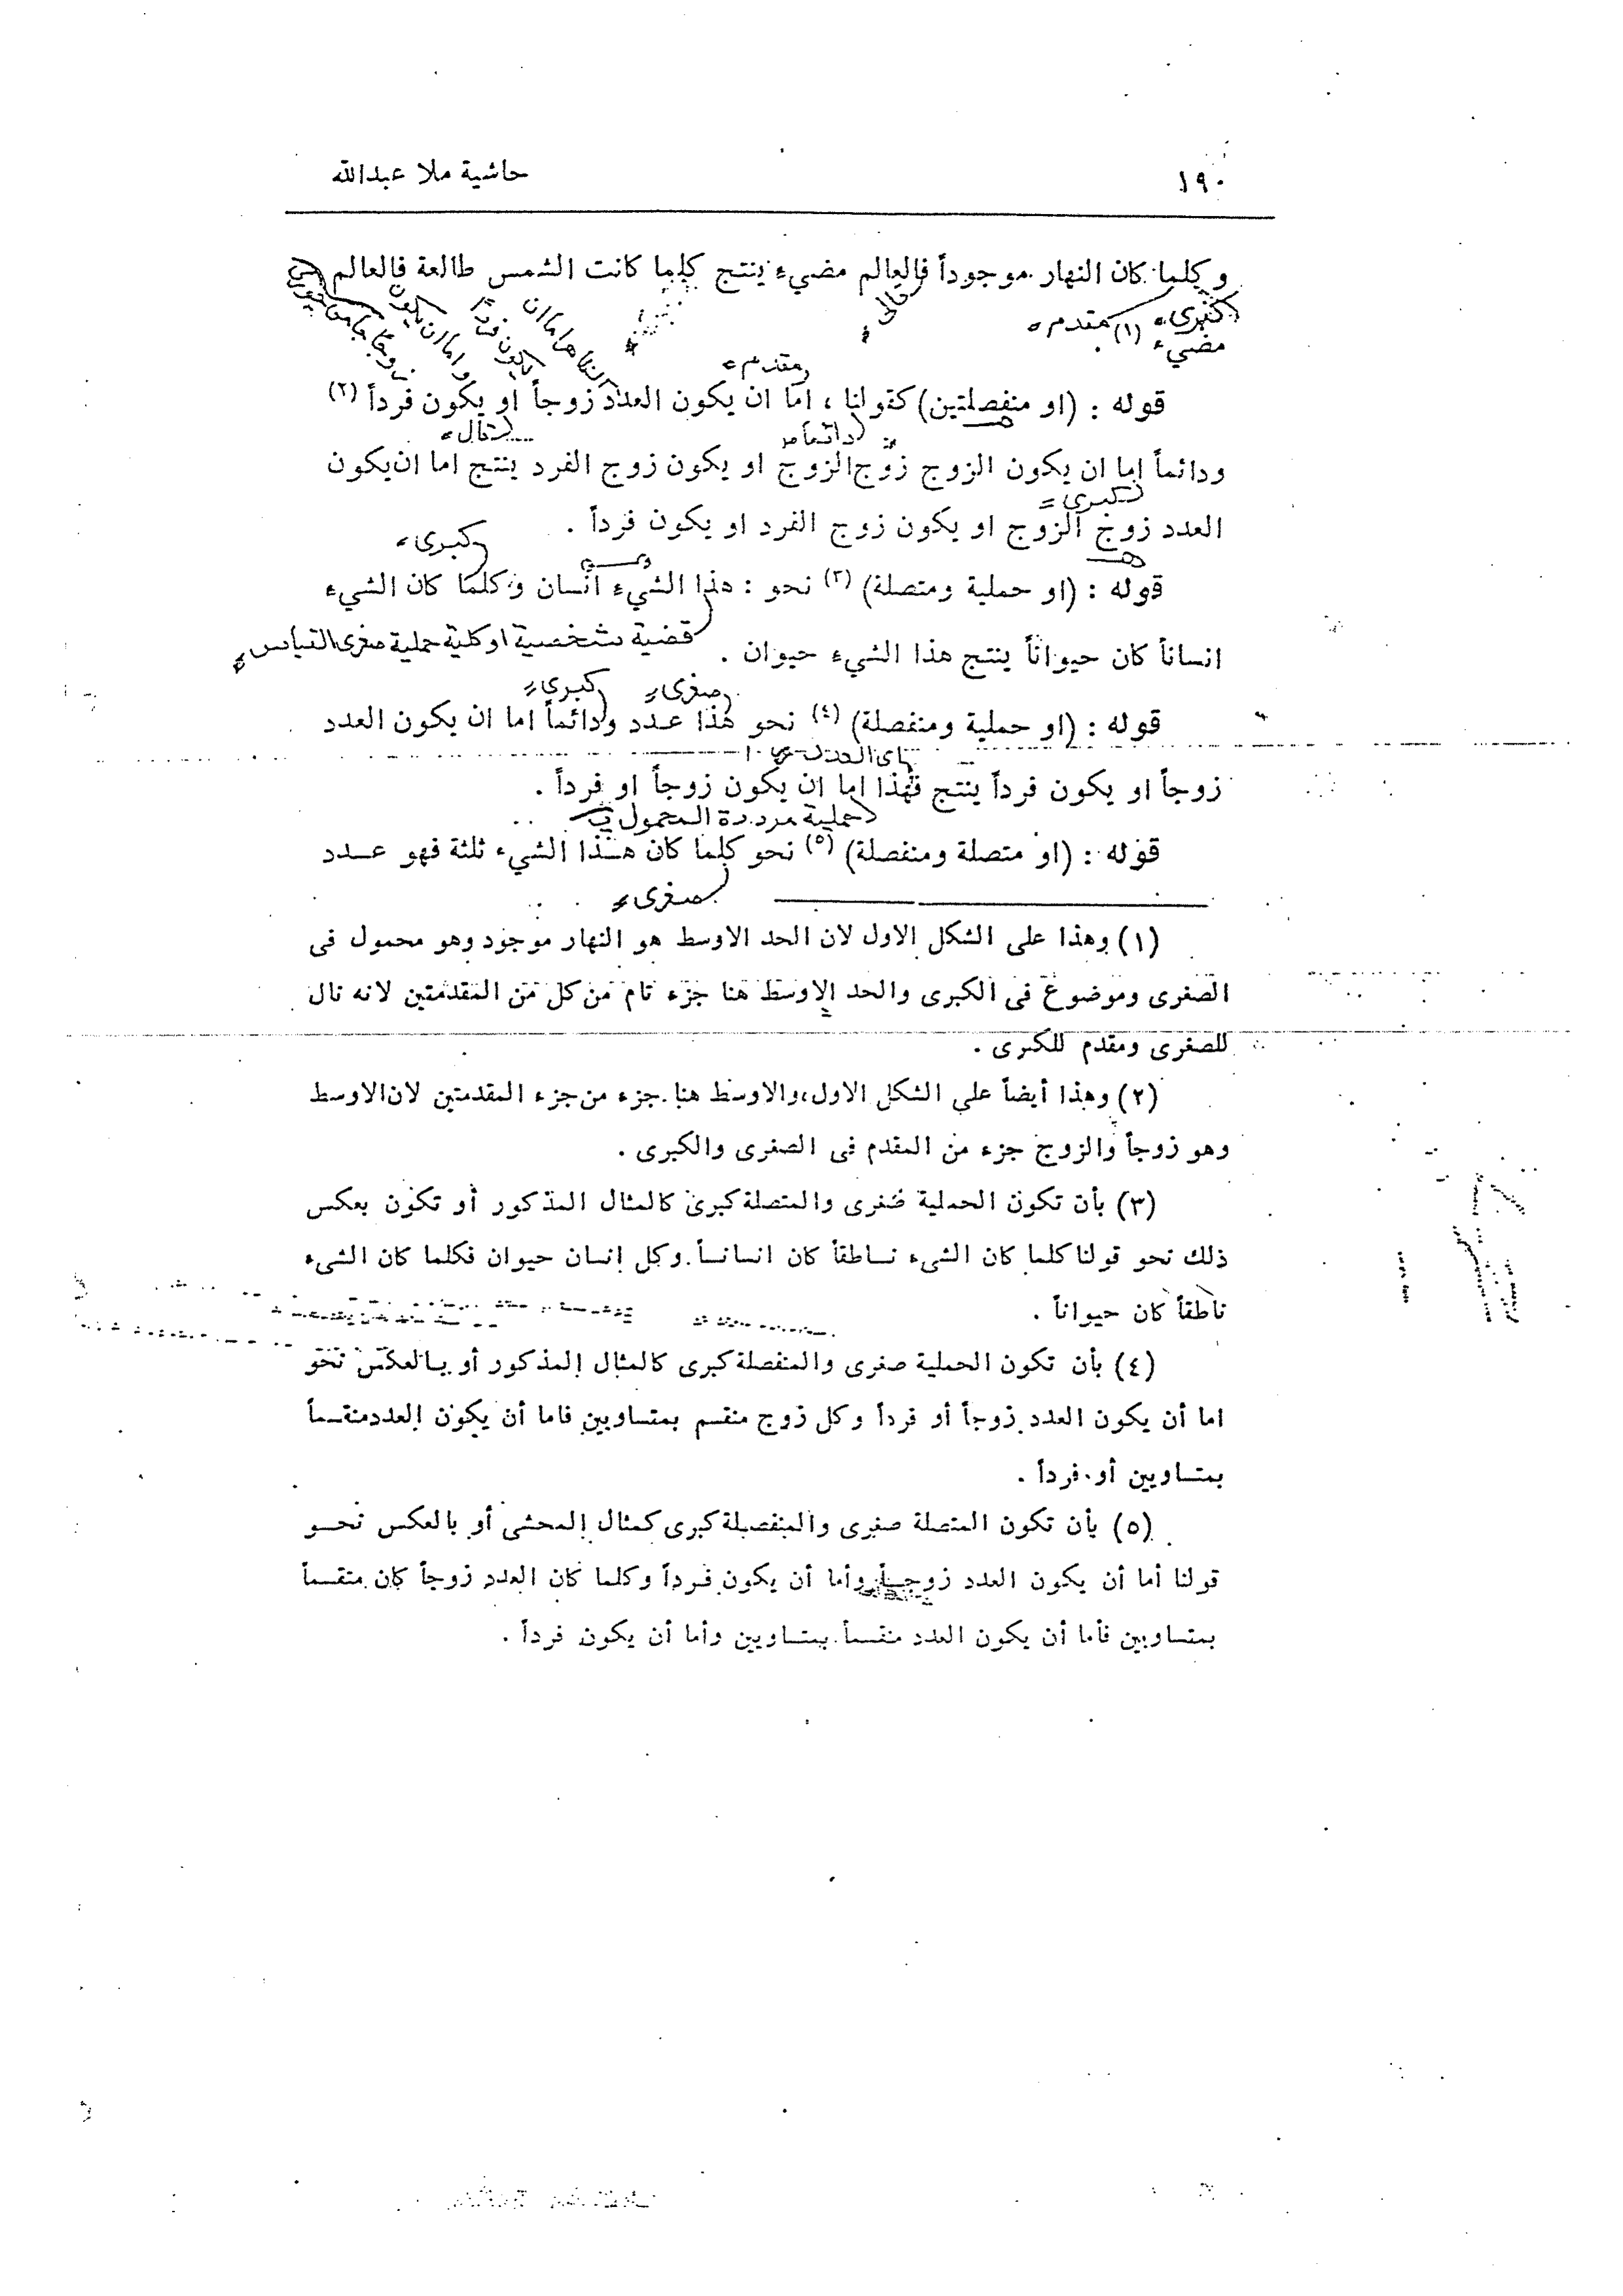 ١٩٠ حاشية ملا عبدالله
وكلما كان النهار موجوداً فالعالم مضيء ينتج كلما كانت الشمس طالعة فالعالم
كبرى مقدم تالى
مضيء (١)
مقدم
قوله : (او منفصلتين) كقولنا ، اما ان يكون العدد زوجاً او يكون فرداً (٢)
دائماً تال
ودائماً اما ان يكون الزوج زوج الزوج او يكون زوج الفرد ينتج اما ان يكون
كبرى
العدد زوج الزوج او يكون زوج الفرد او يكون فرداً .
كبرى
قوله : (او حملية ومتصلة) (٣) نحو : هذا الشيء انسان وكلما كان الشيء
قضية شخصية او كلية حملية صغرى القياس
انساناً كان حيواناً ينتج هذا الشيء حيوان .
صغرى كبرى
قوله : (او حملية ومنفصلة) (٤) نحو هذا عدد ودائماً اما ان يكون العدد
اى العدد
زوجاً او يكون فرداً ينتج فهذا اما ان يكون زوجاً او فرداً .
حملية مرددة المحمول
قوله : (او متصلة ومنفصلة) (٥) نحو كلما كان هذا الشيء ثلثة فهو عدد
صغرى
(١) وهذا على الشكل الاول لان الحد الاوسط هو النهار موجود وهو محمول فى
الصغرى وموضوع فى الكبرى والحد الاوسط هنا جزء تام من كل من المقدمتين لانه تال
للصغرى ومقدم للكبرى .
(٢) وهذا أيضاً على الشكل الاول، والاوسط هنا جزء من جزء المقدمتين لان الاوسط
وهو زوجاً والزوج جزء من المقدم فى الصغرى والكبرى .
(٣) بأن تكون الحملية صغرى والمتصلة كبرى كالمثال المذكور أو تكون بعكس
ذلك نحو قولنا كلما كان الشىء ناطقاً كان انساناً وكل إنسان حيوان فكلما كان الشىء
ناطقاً كان حيواناً .
(٤) بأن تكون الحملية صغرى والمنفصلة كبرى كالمثال المذكور أو بالعكس نحو
اما أن يكون العدد زوجاً أو فرداً وكل زوج منقسم بمتساويين فاما أن يكون العدد منقسماً
بمتساويين أو فرداً .
(٥) بأن تكون المتصلة صغرى والمنفصلة كبرى كمثال المحشى أو بالعكس نحو
قولنا أما أن يكون العدد زوجاً وأما أن يكون فرداً وكلما كان العدد زوجاً كان منقسماً
بمتساويين فأما أن يكون العدد منقسماً بمتساويين وأما أن يكون فرداً .